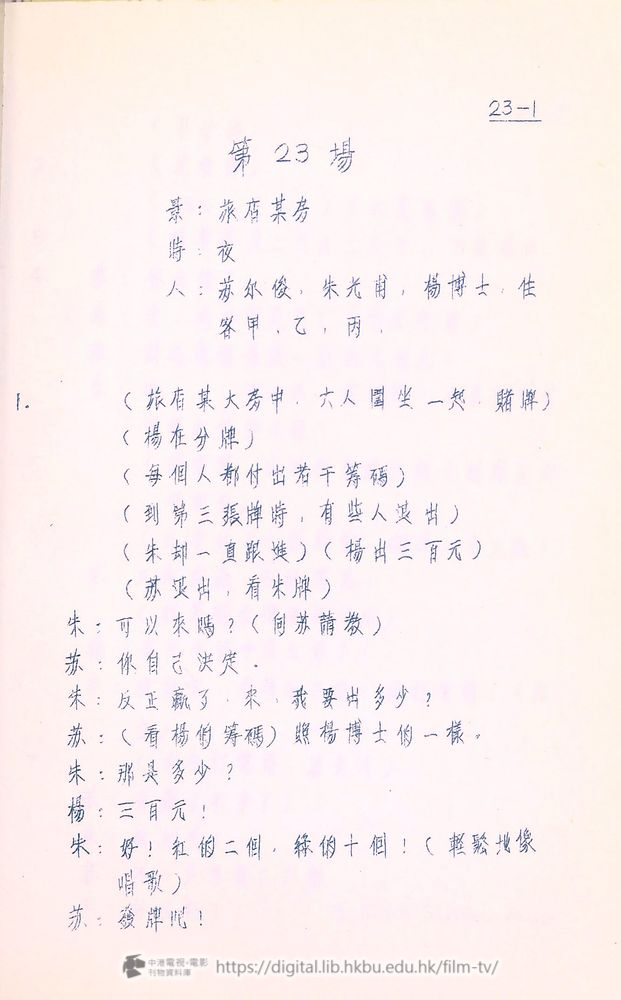 23-1
第 23 場
景：旅店某房
時：夜
人：苏尔俊．朱光甫，楊博士．住
客甲．乙，丙．
1.
（旅店某大房中．六人圍坐一起．賭牌）
（楊在分牌）
（每個人都付出若干筹碼）
（到第三張牌時，有些人退出）
（朱却一直跟進）（楊出三百元）
（苏退出，看朱牌）
朱：可以來嗎？（向苏請教）
苏：你自己決定．
朱：反正贏了．來．我要出多少？
苏：（看楊的筹碼）照楊博士的一樣。
朱：那是多少？
楊：三百元！
朱：好！紅的二個．綠的十個！（輕鬆地像
唱歌）
苏：發牌吧！
中港電視·電影
刊物資料庫
https://digital.lib.hkbu.edu.hk/film-tv/